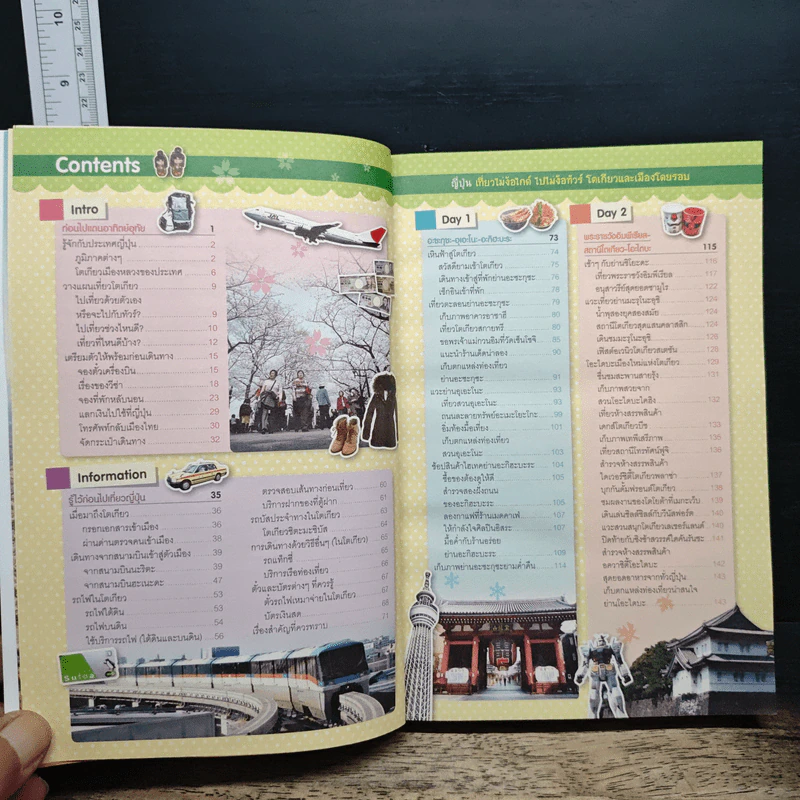 Contents
Intro
ก่อนไปแดนอาทิตย์อุทัย 1
รู้จักกับประเทศญี่ปุ่น 2
ภูมิภาคต่างๆ 2
โตเกียวเมืองหลวงของประเทศ 6
วางแผนเที่ยวโตเกียว 9
ไปเที่ยวด้วยตัวเอง
หรือจะไปกับทัวร์? 9
ไปเที่ยวช่วงไหนดี? 10
เที่ยวที่ไหนดีบ้าง? 12
เตรียมตัวให้พร้อมก่อนเดินทาง 15
จองตั๋วเครื่องบิน 15
เรื่องของวีซ่า 18
จองที่พักหลับนอน 23
แลกเงินไปใช้ที่ญี่ปุ่น 29
โทรศัพท์กลับเมืองไทย 30
จัดกระเป๋าเดินทาง 32
Information
รู้ไว้ก่อนไปเที่ยวญี่ปุ่น 35
เมื่อมาถึงโตเกียว 36
กรอกเอกสารเข้าเมือง 36
ผ่านด่านตรวจคนเข้าเมือง 38
เดินทางจากสนามบินเข้าสู่ตัวเมือง 39
จากสนามบินนะริตะ 39
จากสนามบินฮะเนดะ 47
รถไฟในโตเกียว 53
รถไฟใต้ดิน 53
รถไฟบนดิน 54
ใช้บริการรถไฟ (ใต้ดินและบนดิน) 56
ตรวจสอบเส้นทางก่อนเที่ยว 60
บริการฝากของที่ตู้ฝาก 61
รถบัสประจำทางในโตเกียว 62
โตเกียวชิตะมะชิบัส 64
การเดินทางด้วยวิธีอื่นๆ (ในโตเกียว) 65
รถแท็กซี่ 65
บริการเรือท่องเที่ยว 66
ตั๋วและบัตรต่างๆ ที่ควรรู้ 67
ตั๋วรถไฟเหมาจ่ายในโตเกียว 67
บัตรเงินสด 68
เรื่องสำคัญที่ควรทราบ 71
Suica
ญี่ปุ่น เที่ยวไม่ง้อไกด์ ไปไม่ง้อทัวร์ โตเกียวและเมืองโดยรอบ
Day 1
อะซะกุซะ-อุเอะโนะ-อะกิฮะบะระ 73
เหินฟ้าสู่โตเกียว 74
สวัสดียามเช้าโตเกียว 75
เดินทางเข้าสู่ที่พักย่านอะซะกุซะ 76
เช็กอินเข้าที่พัก 78
เที่ยวตะลอนย่านอะซะกุซะ 79
เก็บภาพอาคารอาซาฮี 80
เที่ยวโตเกียวสกายทรี 80
ขอพรเจ้าแม่กวนอิมที่วัดเซ็นโซจิ 85
แนะนำร้านเด็ดน่าลอง 90
เก็บตกแหล่งท่องเที่ยว
ย่านอะซะกุซะ 91
แวะย่านอุเอะโนะ 93
เที่ยวสวนอุเอะโนะ 93
ถนนละลายทรัพย์อะเมะโยะโกะ 99
อิ่มท้องมื้อเที่ยง 101
เก็บตกแหล่งท่องเที่ยว
สวนอุเอะโนะ
ช้อปสินค้าไฮเทคย่านอะกิฮะบะระ 104
ซื้อของต้องดูให้ดี 105
สำรวจสองฝั่งถนน
ของอะกิฮะบะระ 105
ลองกาแฟที่ร้านเมดคาเฟ่ 107
ให้กำลังใจศิลปินอิสระ
มื้อค่ำกับร้านอร่อย
ย่านอะกิฮะบะระ 109
เก็บภาพย่านอะซะกุซะยามค่ำคืน 114
Day 2
พระราชวังอิมพีเรียล-
สถานีโตเกียว-โอะไดบะ 115
เช้าๆ กับย่านชิโยะดะ 116
เที่ยวพระราชวังอิมพีเรียล 117
อนุสาวรีย์สุดยอดซามูไร 122
แวะเที่ยวย่านมะรุโนะอุชิ 124
น้ำพุสองยุคสองสมัย 124
สถานีโตเกียวสุดแสนคลาสสิก 124
เดินชมมะรุโนะอุชิ 128
เฟิสต์อเวนิวโตเกียวสเตชัน 129
โอะไดบะเมืองใหม่แห่งโตเกียว 130
ชื่นชมสะพานสายรุ้ง 131
เก็บภาพสวยจาก
สวนโอะไดบะไคฮิง 132
เที่ยวห้างสรรพสินค้า
เดกส์โตเกียวบีช 133
เก็บภาพเทพีเสรีภาพ 135
เที่ยวสถานีโทรทัศน์ฟูจิ 135
สำรวจห้างสรรพสินค้า
ไดเวอร์ซิตี้โตเกียวพลาซ่า
บุกกันดั้มฟรอนต์โตเกียว 138
ชมผลงานของโตโยต้าที่เมกะเว็บ
เดินเล่นชิลล์ชิลล์กับวีนัสฟอร์ต
แวะสวนสนุกโตเกียวเลเชอร์แลนด์
ปิดท้ายกับชิงช้าสวรรค์ไดคันรันชะ 141
สำรวจห้างสรรพสินค้า
อควาซิตี้โอะไดบะ 142
สุดยอดอาหารจากทั่วญี่ปุ่น
เก็บตกแหล่งท่องเที่ยวน่าสนใจ
ย่านโอะไดบะ 143